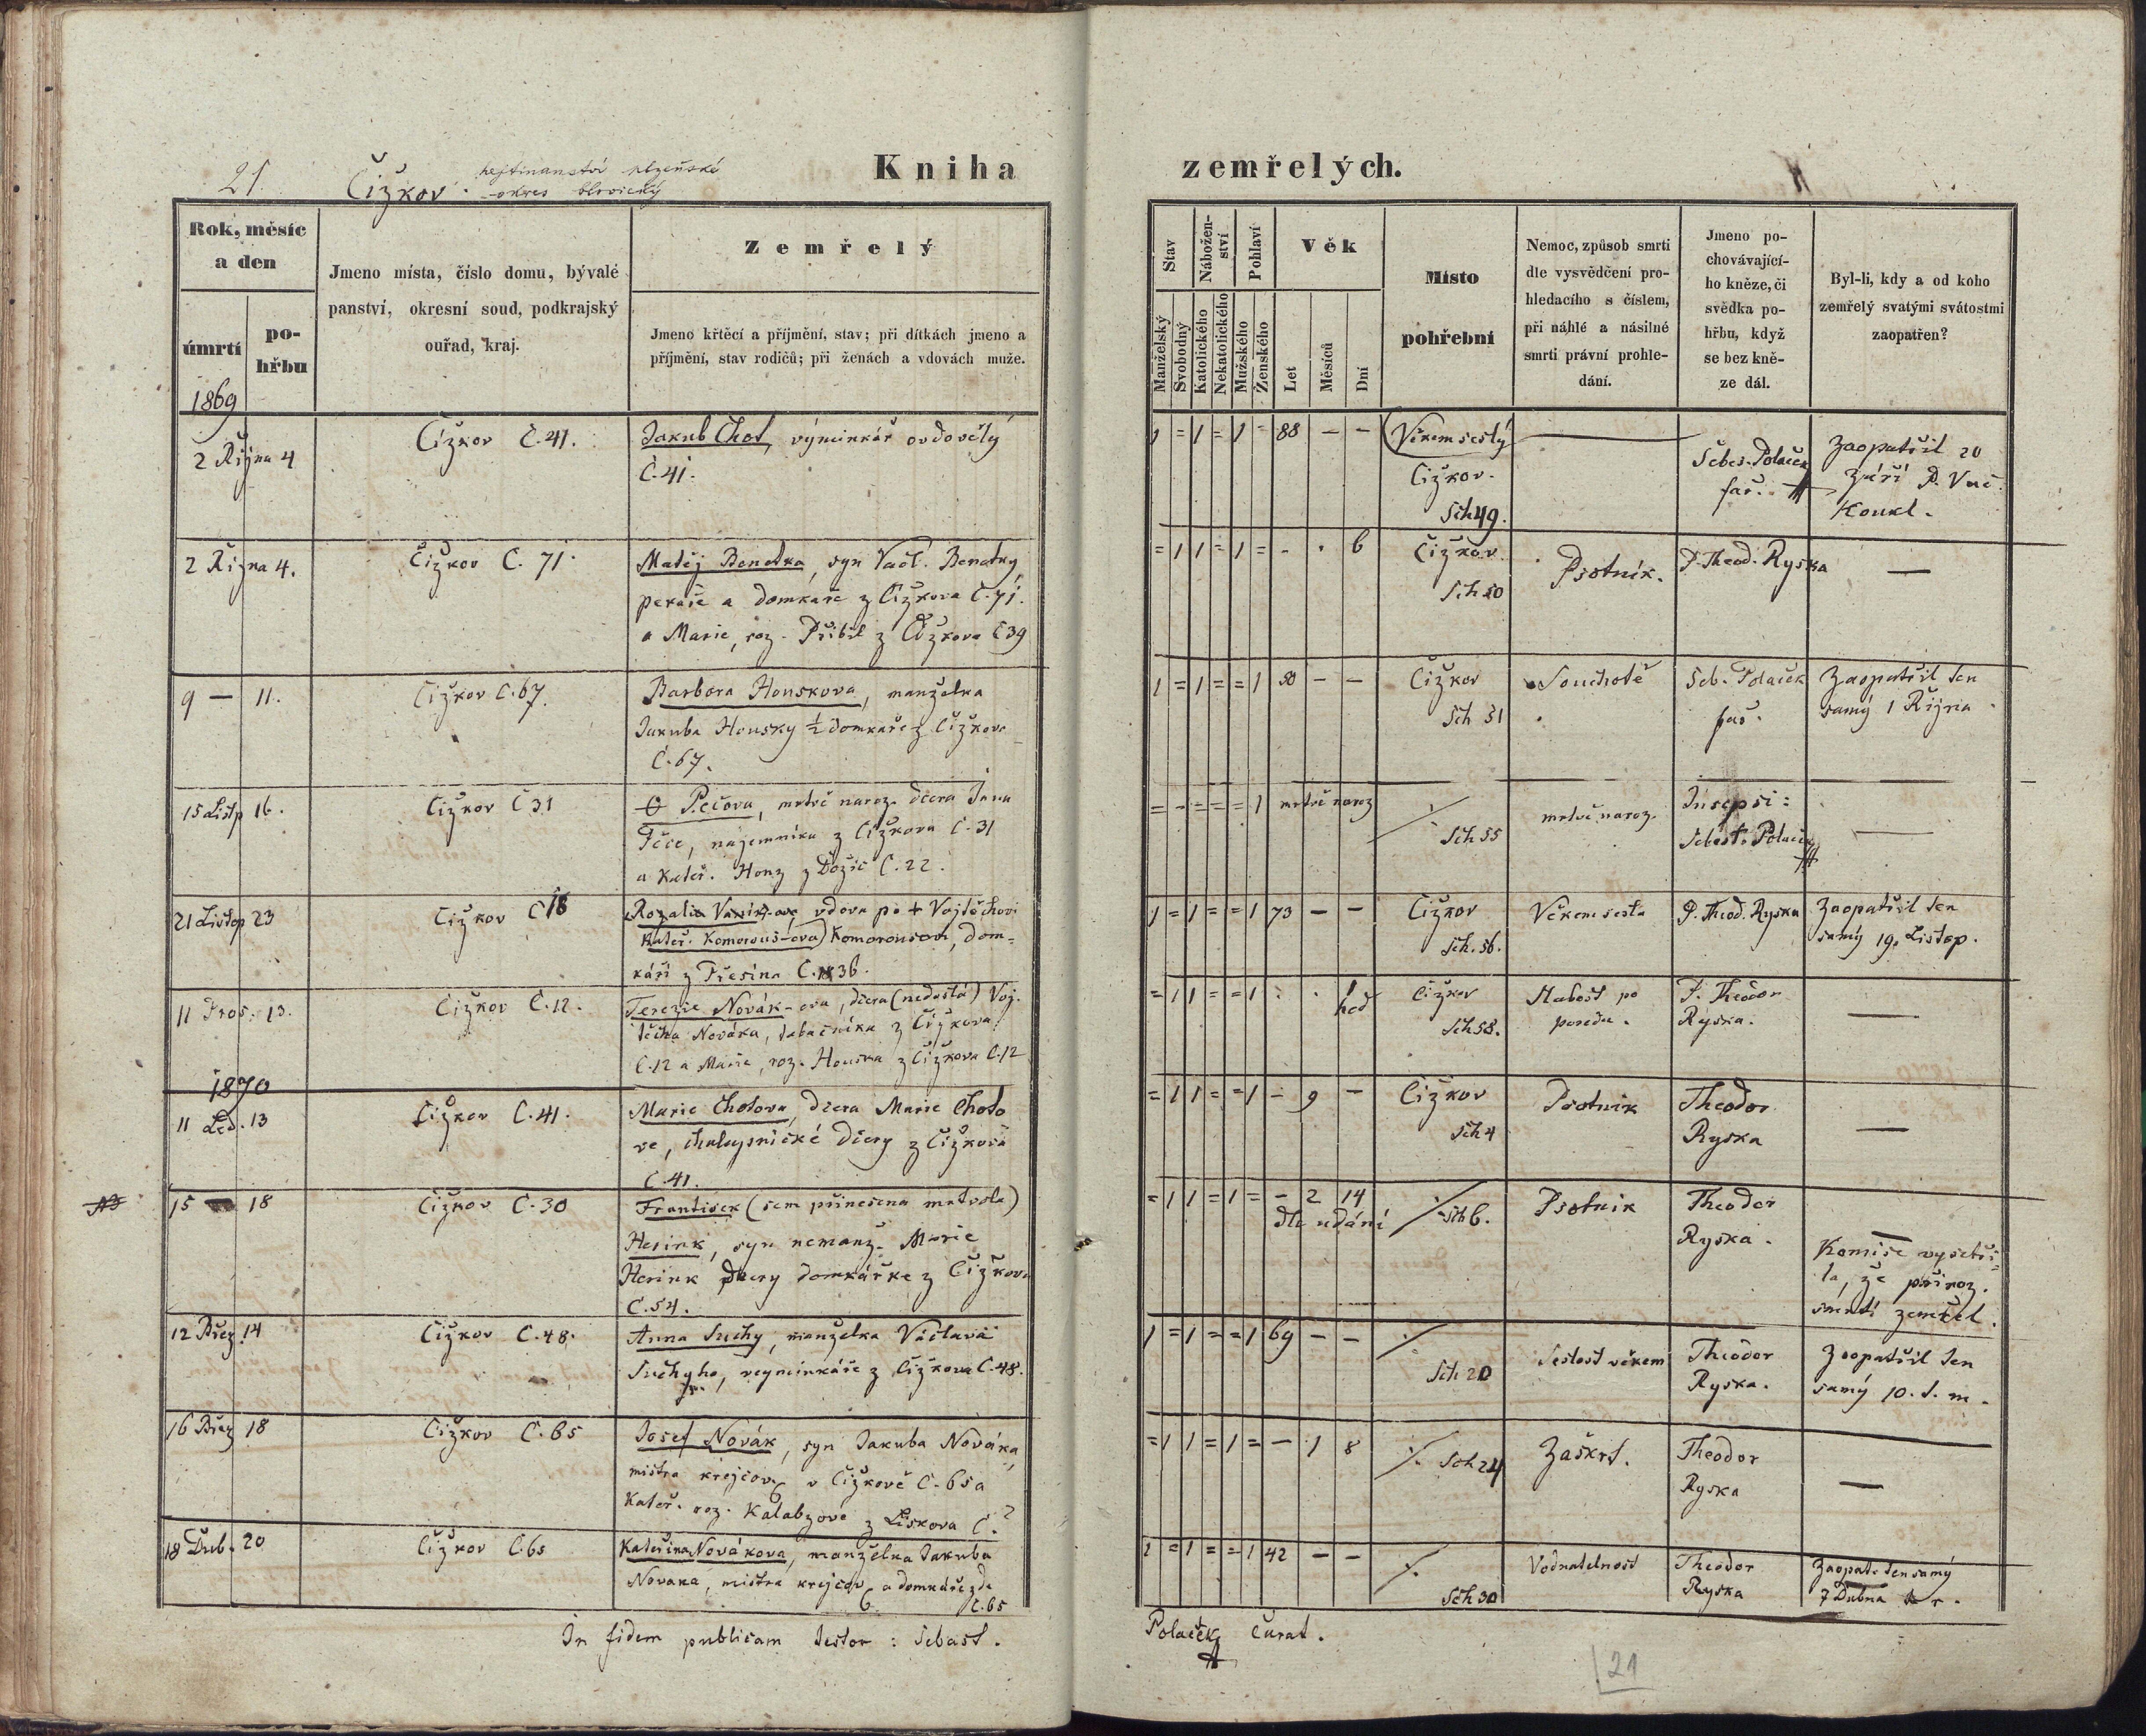 21.
Čižkov.
hejtmanství plzeňské
okres blovický
Kniha zemřelých.
Rok, měsíc a den
úmrtí
pohřbu
Jmeno místa, číslo domu, bývalé
panství, okresní soud, podkrajský
ouřad, kraj.
Zemřelý
Jmeno křtěcí a příjmění, stav; při dítkách jmeno a
příjmění, stav rodičů; při ženách a vdovách muže.
Stav
Nábožen-
ství
Pohlaví
Věk
Manželský
Svobodný
Katolického
Nekatolického
Mužského
Ženského
Let
Měsíců
Dní
Místo
pohřební
Nemoc, způsob smrti
dle vysvědčení pro-
hledacího s číslem,
při náhlé a násilné
smrti právní prohle-
dání.
Jmeno po-
chovávající-
ho kněze, či
svědka po-
hřbu, když
se bez kně-
ze dál.
Byl-li, kdy a od koho
zemřelý svatými svátostmi
zaopatřen?
1869
2 Října 4
Čižkov Č. 41.
Jakub Chot, výminkář ovdovělý
Č. 41.
1 = 1 = 1 = 88 — —
Věkem sešlý
Čižkov.
Sch 49.
Šebes. Polaček
far.
Zaopatřil 20
Září P. Vác.
Koukl.
2 Října 4.
Čižkov Č. 71.
Matěj Benetka, syn Václ. Benetky,
pekaře a domkaře z Čižkova Č. 71.
a Marie, roz. Přibil z Čižkova Č 39
= 1 1 = 1 = - . 6
Čižkov
Sch 50
Psotník.
P. Theod. Ryska
—
9 — 11.
Čižkov Č. 67.
Barbora Houskova, manželka
Jakuba Housky ½ domkaře z Čižkova
Č. 67.
1 = 1 = = 1 50 — —
Čižkov
Sch 51
Souchotě
Seb. Polaček
far.
Zaopatřil ten
samý 1 Října
15 Listp 16.
Čižkov Č 31
Pečova, mrtvě naroz. dcera Jana
Peče, nájemníka z Čižkova Č. 31
a Kateř. Honz z Dožic Č. 22.
= - = = = 1 mrtvě naroz
Sch 55
mrtvě naroz.
Insepsi:
Sebast. Polaček
—
21 Listop 23
Čižkov Č 18
Rozalia vdova po + Vojtěchovi
Kateř. Komorous-ova) Komorousovi, dom-
káři z Přešína Č. 36.
1 = 1 = = 1 73 — —
Čižkov
Sch. 56.
Věkem sešla
P. Theod. Ryska
Zaopatřil ten
samý 19. Listop.
11 Pros. 13.
Čižkov Č. 12.
Terezie Novák-ova, dcera (nedošlá) Voj-
těcha Nováka, tabačníka z Čižkova
Č. 12 a Marie, roz. Houska z Čižkova Č. 12
= 1 1 = = 1 . . 1 hod
Čižkov
Sch 58.
Slabost po
porodu.
P. Theodor
Ryska.
—
1870
11 Led. 13
Čižkov Č. 41.
Marie Chotova, dcera Marie Choto
ve, chalupnické dcery z Čižkova
Č. 41.
= 1 1 = = 1 - 9 —
Čižkov
Sch 4
Psotnik
Theodor
Ryska
—
15 — 18
Čižkov Č. 30
František (sem přinešena mrtvola)
Hesink, syn nemanž. Marie
Hesink dcery domkářke z Čižkova
Č. 54.
= 1 1 = 1 = - 2 14
dle udání
Sch 6.
Psotnik
Theodor
Ryska.
—
Komise vyšetři-
la, že přiroz.
smrtí zemřel.
12 Břez 14
Čižkov Č. 48.
Anna Suchy, manželka Václava
Suchyho, vyminkáře z Čižkova Č. 48.
1 = 1 = = 1 69 — —
Sch 20
Sešlost věkem
Theodor
Ryska.
Zaopatřil ten
samý 10. t. m.
16 Břez 18
Čižkov Č. 65
Josef Novák, syn Jakuba Nováka,
mistra krejčov. v Čižkově Č. 65 a
Kateř. roz. Kalabzové z Liskova Č. ?
= 1 1 = 1 = — 1 8
Sch 24
Zaškrt.
Theodor
Ryska
—
18 Dub. 20
Čižkov Č. 65
Kateřina Novákova, manželka Jakuba
Nováka, mistra krejčov. a domkáře zde
Č. 65
1 = 1 = = 1 42 — —
Sch 30
Vodnatelnost
Theodor
Ryska
Zaopat. ten samý
7 Dubna t. r.
In fidem publicam testor: Sebast.
Polaček Curat.
21